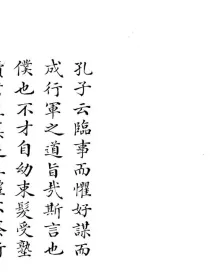 孔子云臨事而懼好謀而
成行軍之道旨㢤斯言也
僕也不才自幼束髮受塾